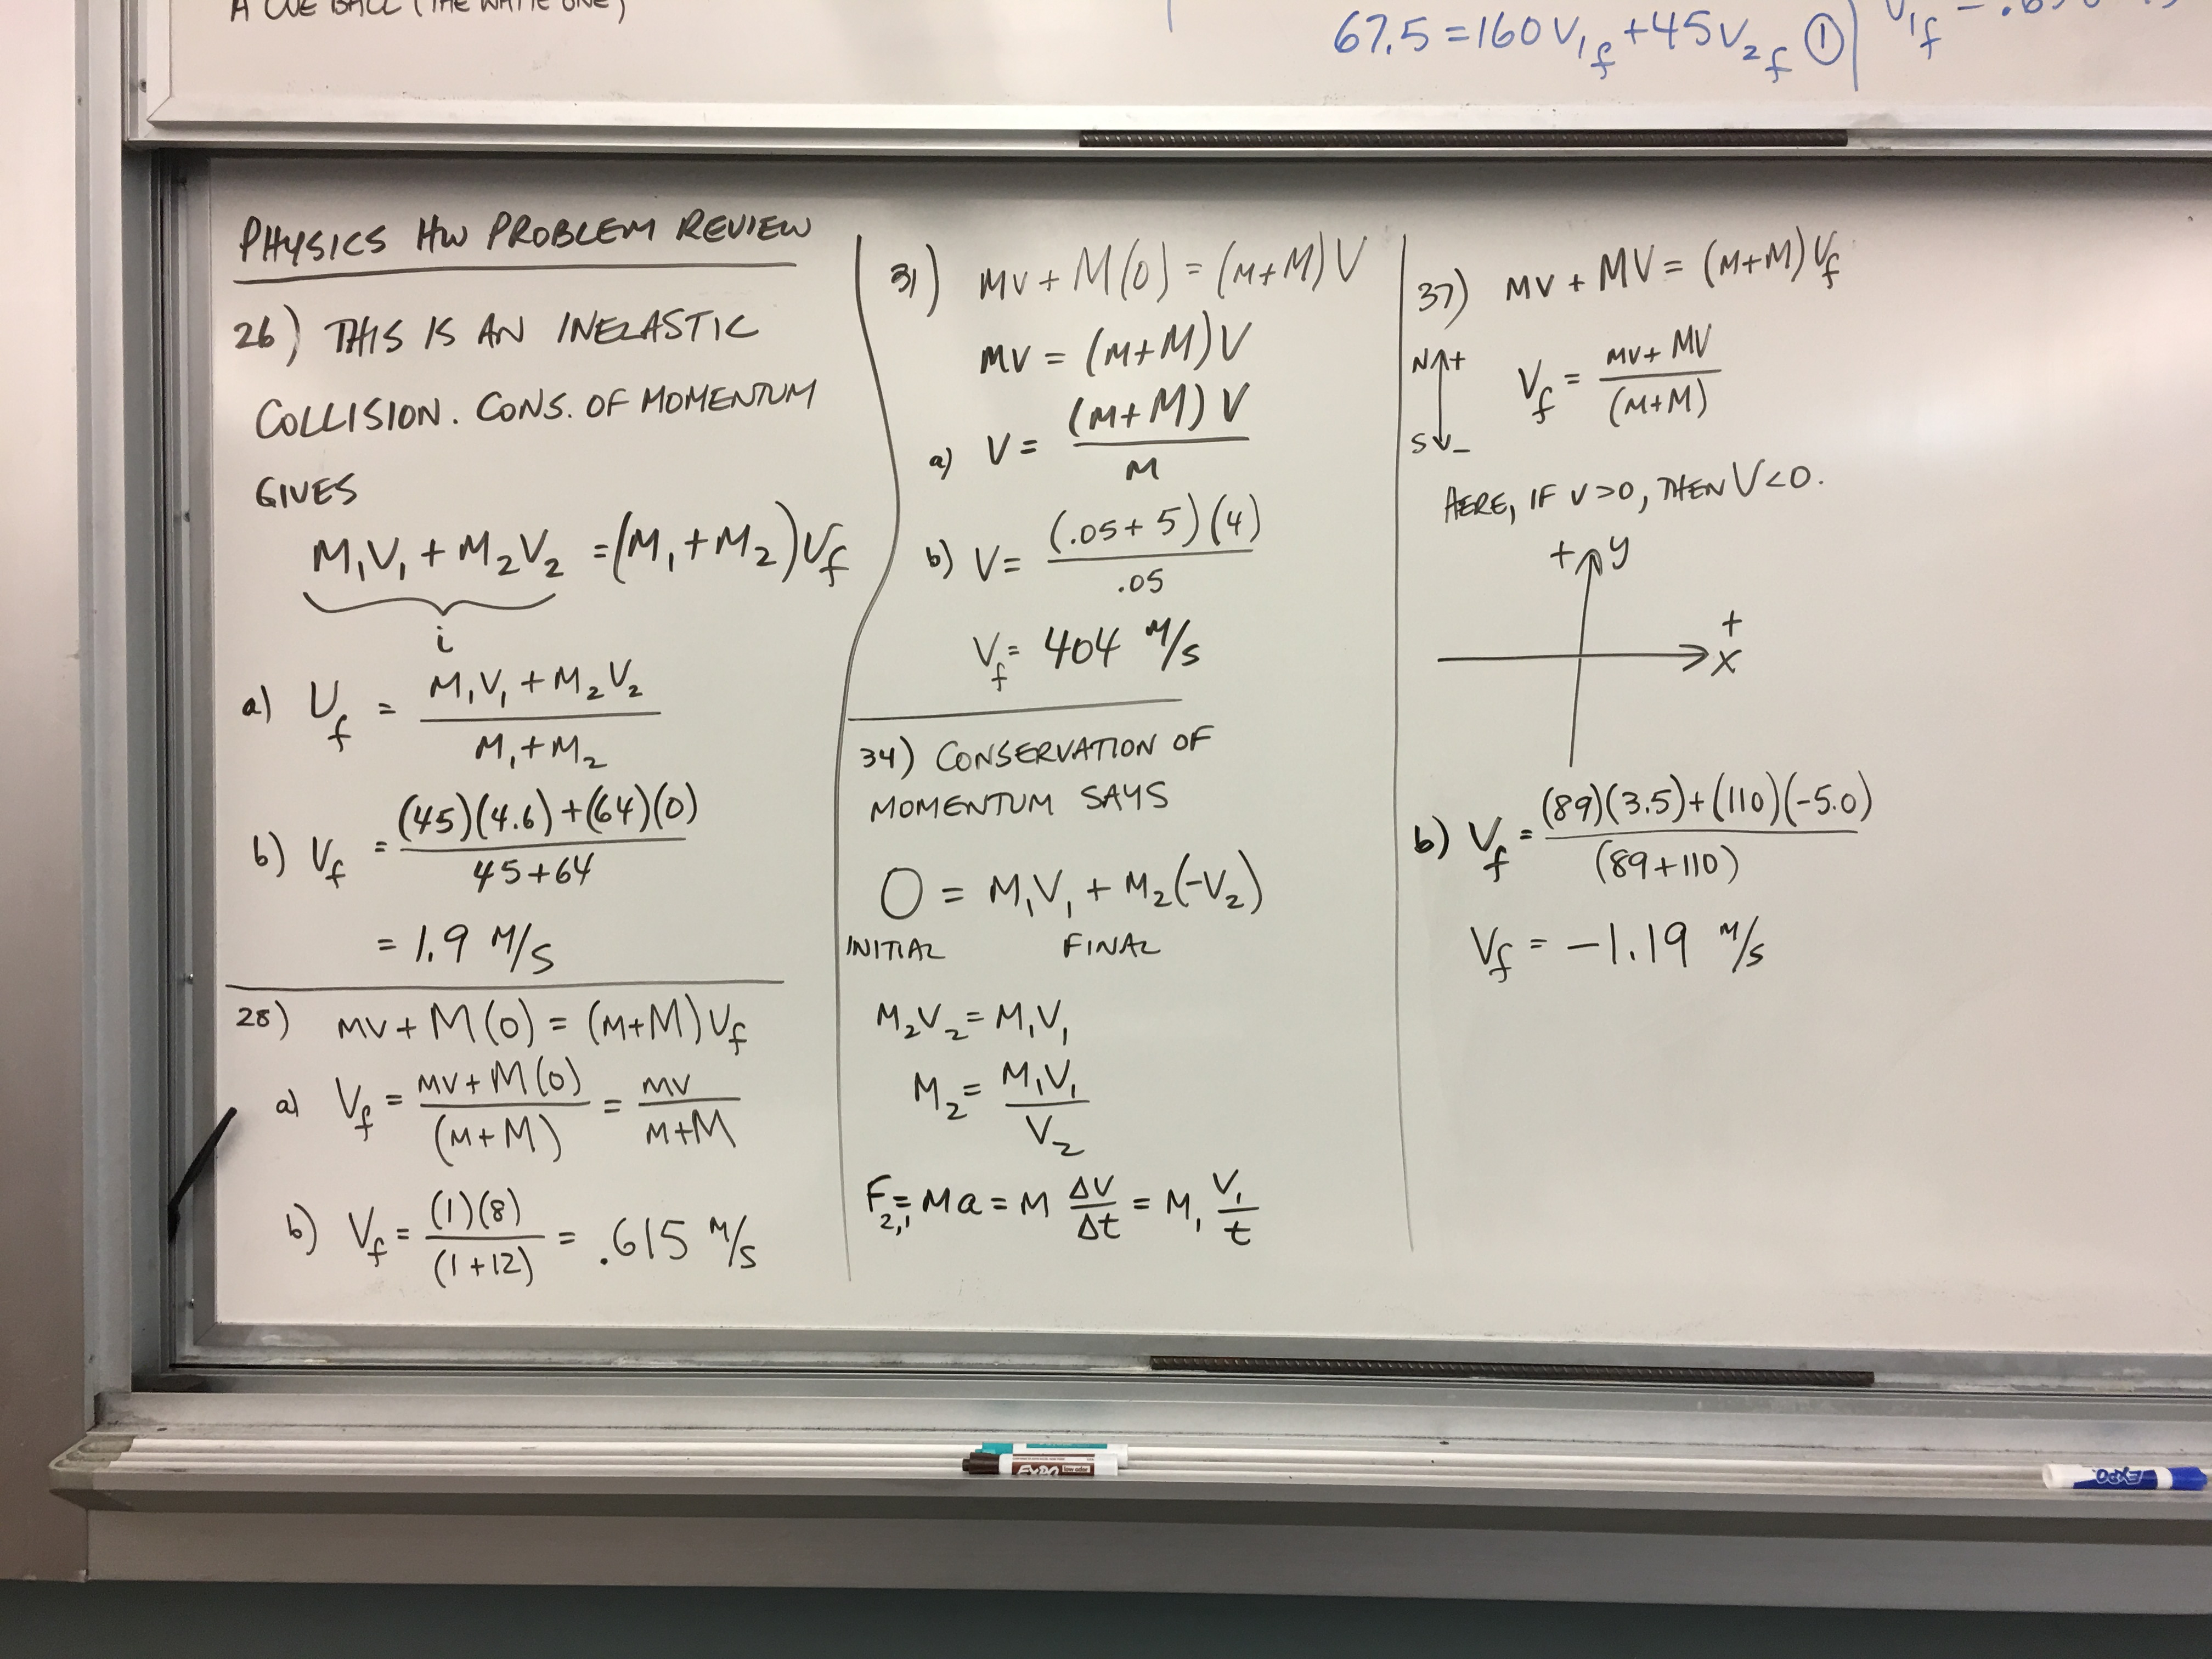 A CUE BALL (THE WHITE ONE)
67.5 = 160 V₁f + 45 V₂f ①
V₁f
PHYSICS HW PROBLEM REVIEW
26) THIS IS AN INELASTIC
COLLISION. CONS. OF MOMENTUM
GIVES
M₁V₁ + M₂V₂ = (M₁ + M₂) Vf
i
a) Vf = (M₁V₁ + M₂V₂) / (M₁ + M₂)
b) Vf = ((45)(4.6) + (64)(0)) / (45 + 64)
= 1.9 M/S
28) mv + M(0) = (m + M) Vf
a) Vf = (mv + M(0)) / (m + M) = mv / (m + M)
b) Vf = (1)(8) / (1 + 12) = .615 M/S
31) mv + M(0) = (m + M) V
mv = (m + M) V
a) V = (m + M) V / m
b) V = (.05 + 5)(4) / .05
Vf = 404 M/S
34) CONSERVATION OF
MOMENTUM SAYS
0 = M₁V₁ + M₂(-V₂)
INITIAL FINAL
M₂V₂ = M₁V₁
M₂ = M₁V₁ / V₂
F₂,₁ = Ma = M ΔV/Δt = M₁ V₁/t
37) mv + MV = (m + M) Vf
N +
Vf = (mv + MV) / (m + M)
S -
HERE, IF v > 0, THEN V < 0.
+ y
+
x
b) Vf = ((89)(3.5) + (110)(-5.0)) / (89 + 110)
Vf = -1.19 M/S
EXPO low odor
EXPO